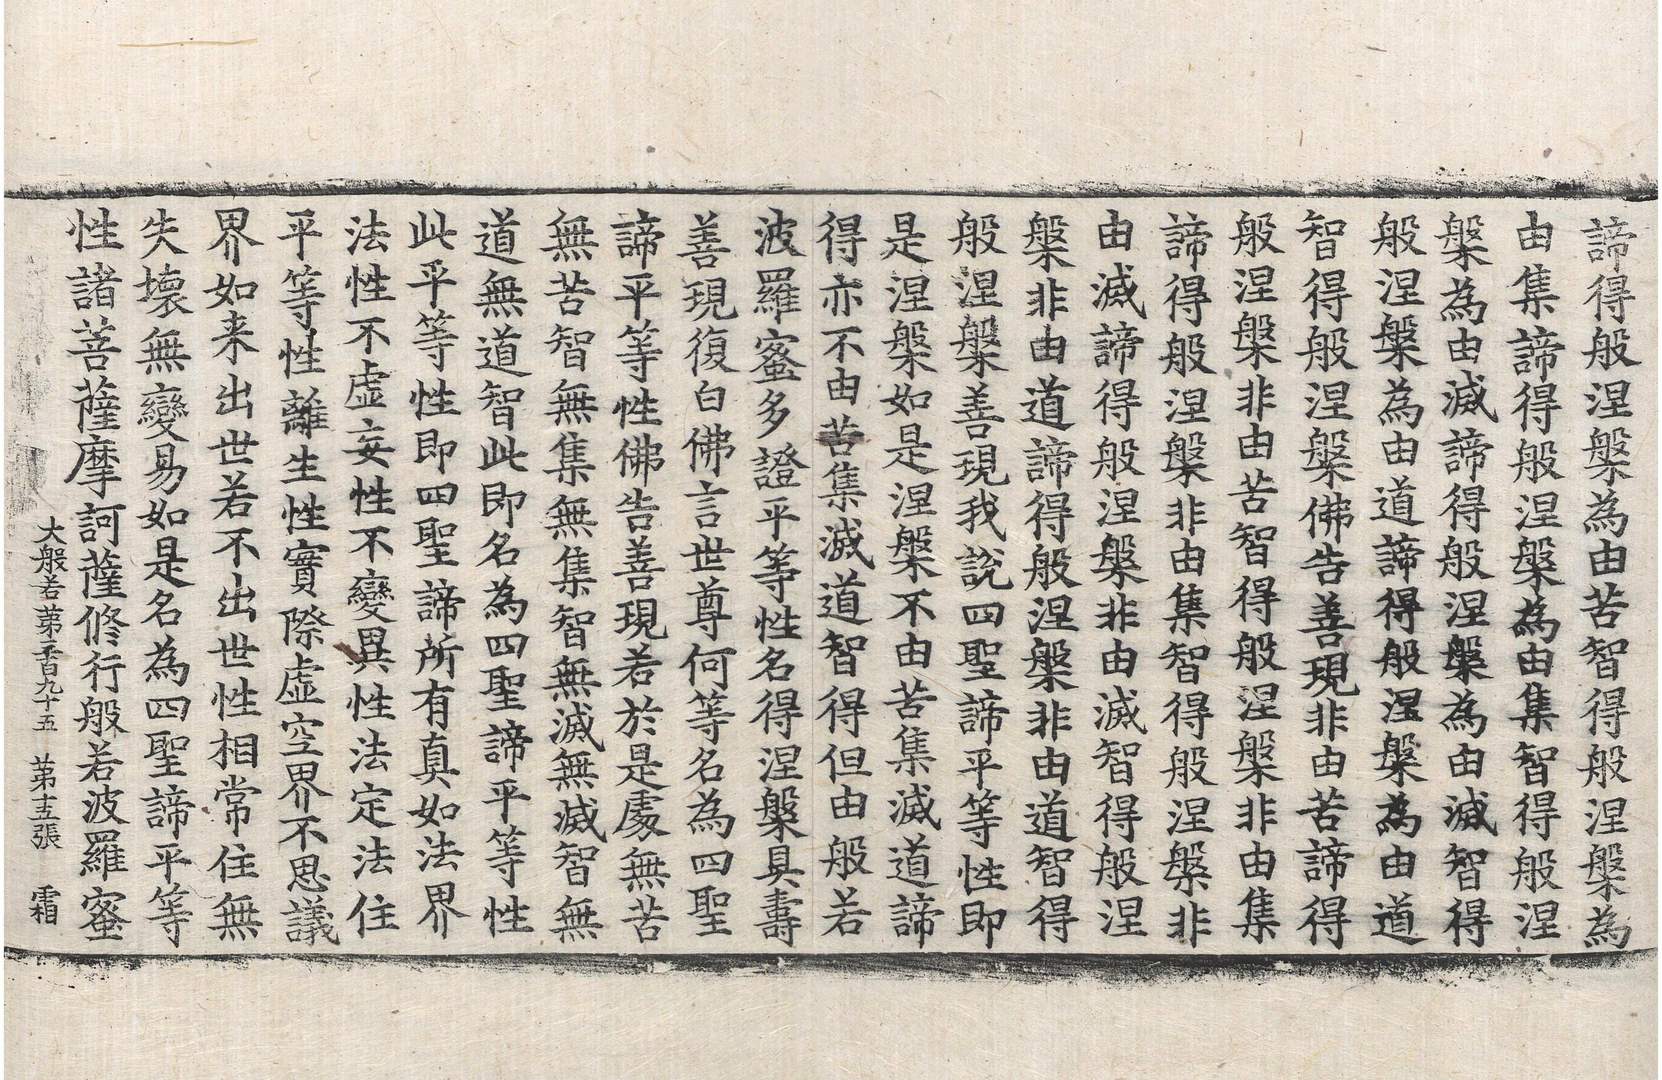 諦得般涅槃為由苦智得般涅槃為
由集諦得般涅槃為由集智得般涅
槃為由滅諦得般涅槃為由滅智得
般涅槃為由道諦得般涅槃為由道
智得般涅槃佛告善現非由苦諦得
般涅槃非由苦智得般涅槃非由集
諦得般涅槃非由集智得般涅槃非
由滅諦得般涅槃非由滅智得般涅
槃非由道諦得般涅槃非由道智得
般涅槃善現我說四聖諦平等性即
是涅槃如是涅槃不由苦集滅道諦
得亦不由苦集滅道智得但由般若
波羅蜜多證平等性名得涅槃具壽
善現復白佛言世尊何等名為四聖
諦平等性佛告善現若於是處無苦
無苦智無集無集智無滅無滅智無
道無道智此即名為四聖諦平等性
此平等性即四聖諦所有真如法界
法性不虛妄性不變異性法定法住
平等性離生性實際虛空界不思議
界如来出世若不出世性相常住無
失壞無變易如是名為四聖諦平等
性諸菩薩摩訶薩修行般若波羅蜜
大般若第三百九十五 第十五張 霜